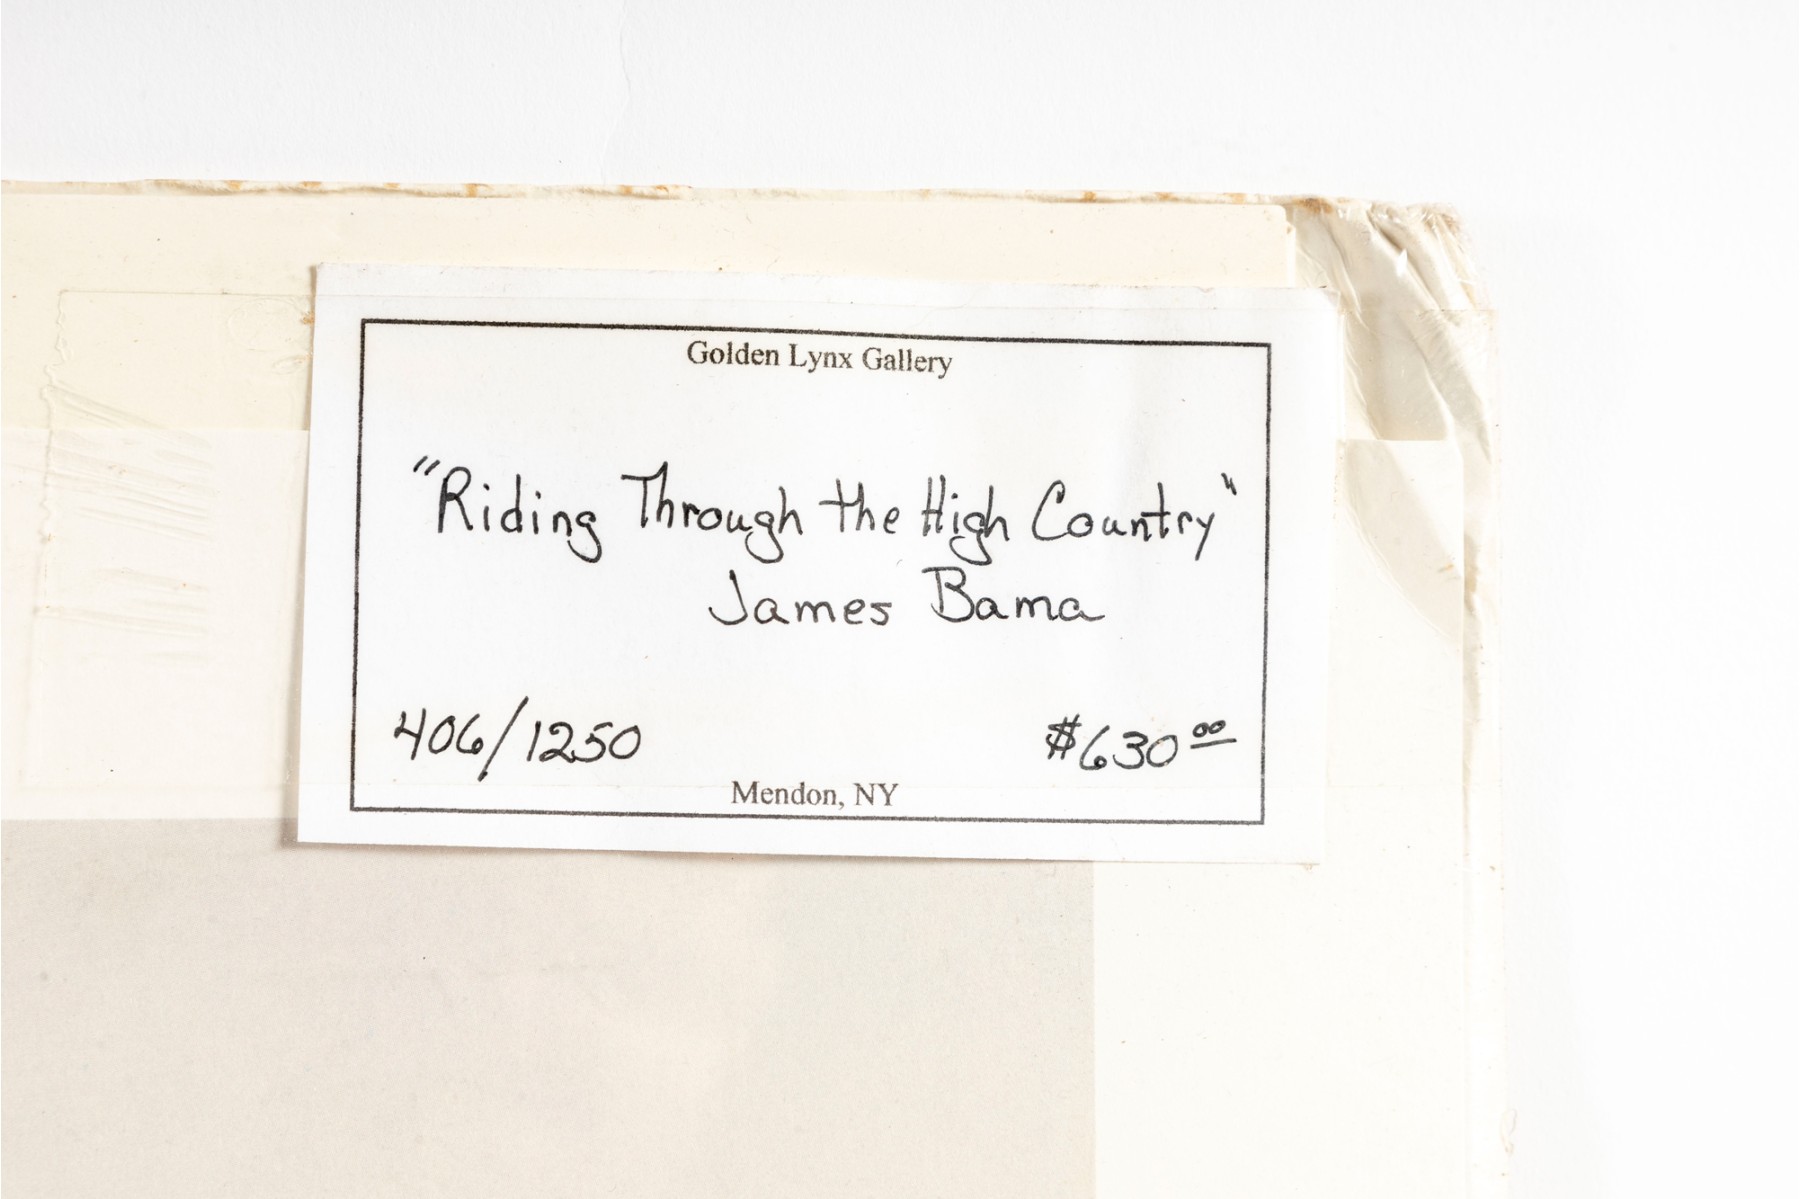 Golden Lynx Gallery
"Riding Through the High Country"
James Bama
406/1250 $630.00
Mendon, NY